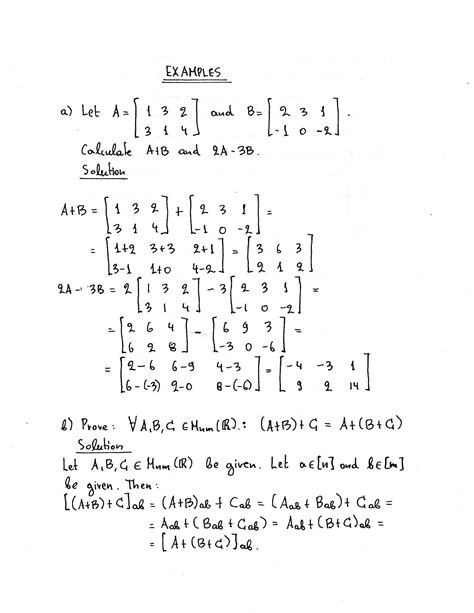 EXAMPLES
a) Let A = [ 1 3 2 ] and B = [ 2 3 1 ] .
[ 3 1 4 ] [ -1 0 -2 ]
Calculate A+B and 2A-3B.
Solution
A+B = [ 1 3 2 ] + [ 2 3 1 ] =
[ 3 1 4 ] [ -1 0 -2 ]
= [ 1+2 3+3 2+1 ] = [ 3 6 3 ]
[ 3-1 1+0 4-2 ] [ 2 1 2 ]
2A - 3B = 2 [ 1 3 2 ] - 3 [ 2 3 1 ] =
[ 3 1 4 ] [ -1 0 -2 ]
= [ 2 6 4 ] - [ 6 9 3 ] =
[ 6 2 8 ] [ -3 0 -6 ]
= [ 2-6 6-9 4-3 ] = [ -4 -3 1 ]
[ 6-(-3) 2-0 8-(-6) ] [ 9 2 14 ]
b) Prove: ∀A,B,C ∈ Mnm(ℝ): (A+B)+C = A+(B+C)
Solution
Let A,B,C ∈ Mnm(ℝ) be given. Let a∈[n] and b∈[m]
be given. Then:
[(A+B)+C]ab = (A+B)ab + Cab = (Aab + Bab) + Cab =
= Aab + (Bab + Cab) = Aab + (B+C)ab =
= [A+(B+C)]ab.